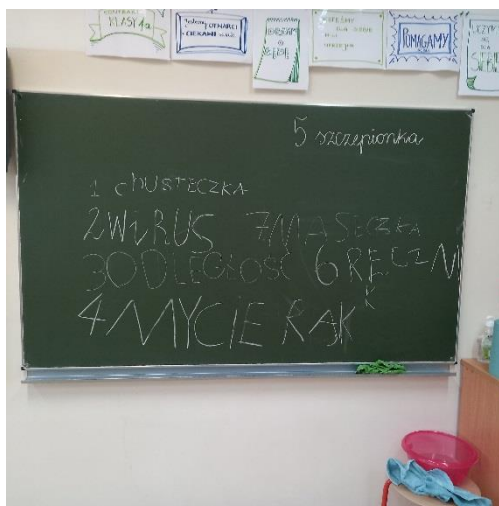 KLASY 4a
OTWARCI
CIEKAWI
POMAGAMY
5 szczepionka
1 chUSTECZKA
2 WiRUS 7 MASECZKA
3 ODLEGŁOŚĆ 6 RĘCZNI
K
4 MYCIE RĄK